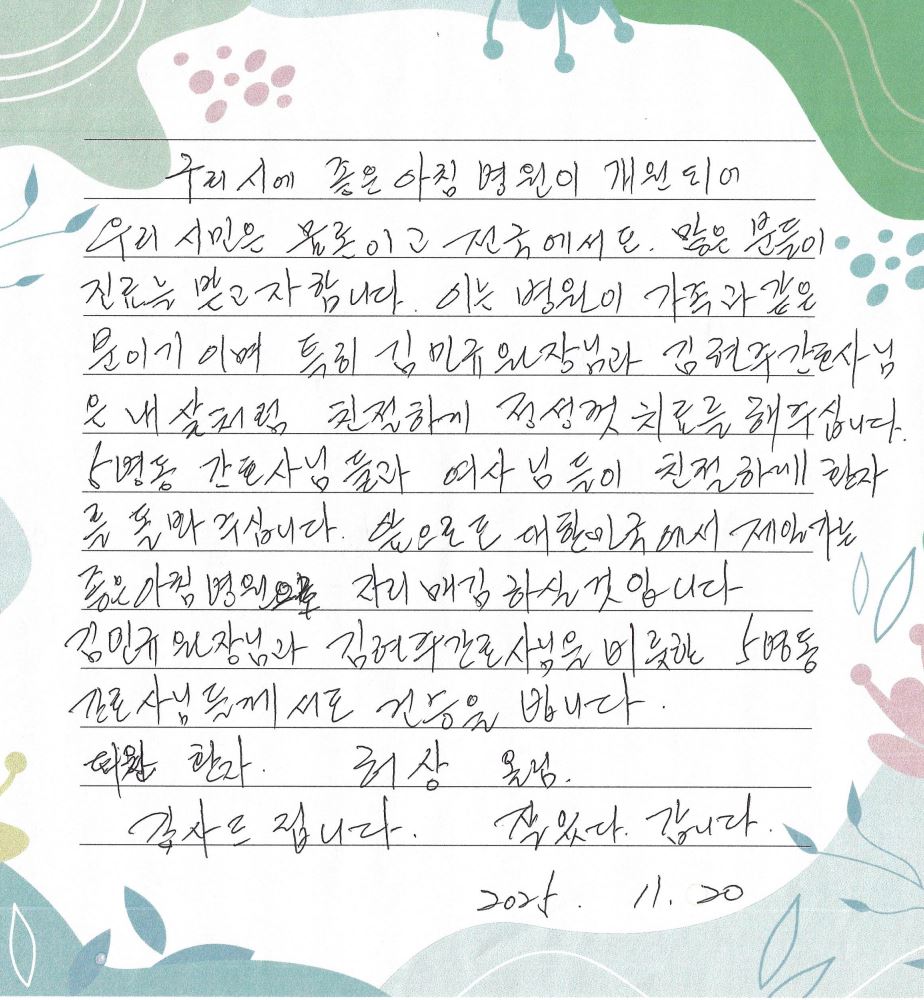 우리 시에 좋은아침 병원이 개원되어
우리 시민은 물론이고 전국에서도. 많은 분들이
진료를 받고자 합니다. 이는 병원이 가족과 같은
분이기 이며 특히 김민규 원장님과 김현주간호사님
은 내 살처럼 친절하게 정성껏 치료를 해주십니다.
5병동 간호사님들과 여사님들이 친절하게 환자
를 돌봐주십니다. 앞으로도 대한민국에서 제일가는
좋은아침병원으로 자리매김 하실것입니다
김민규 원장님과 김현주간호사님을 비롯한 5병동
간호사님들께서도 건승을 빕니다.
퇴원 환자. 허상 올림.
감사드립니다. 잘있다. 갑니다.
2025. 11. 20